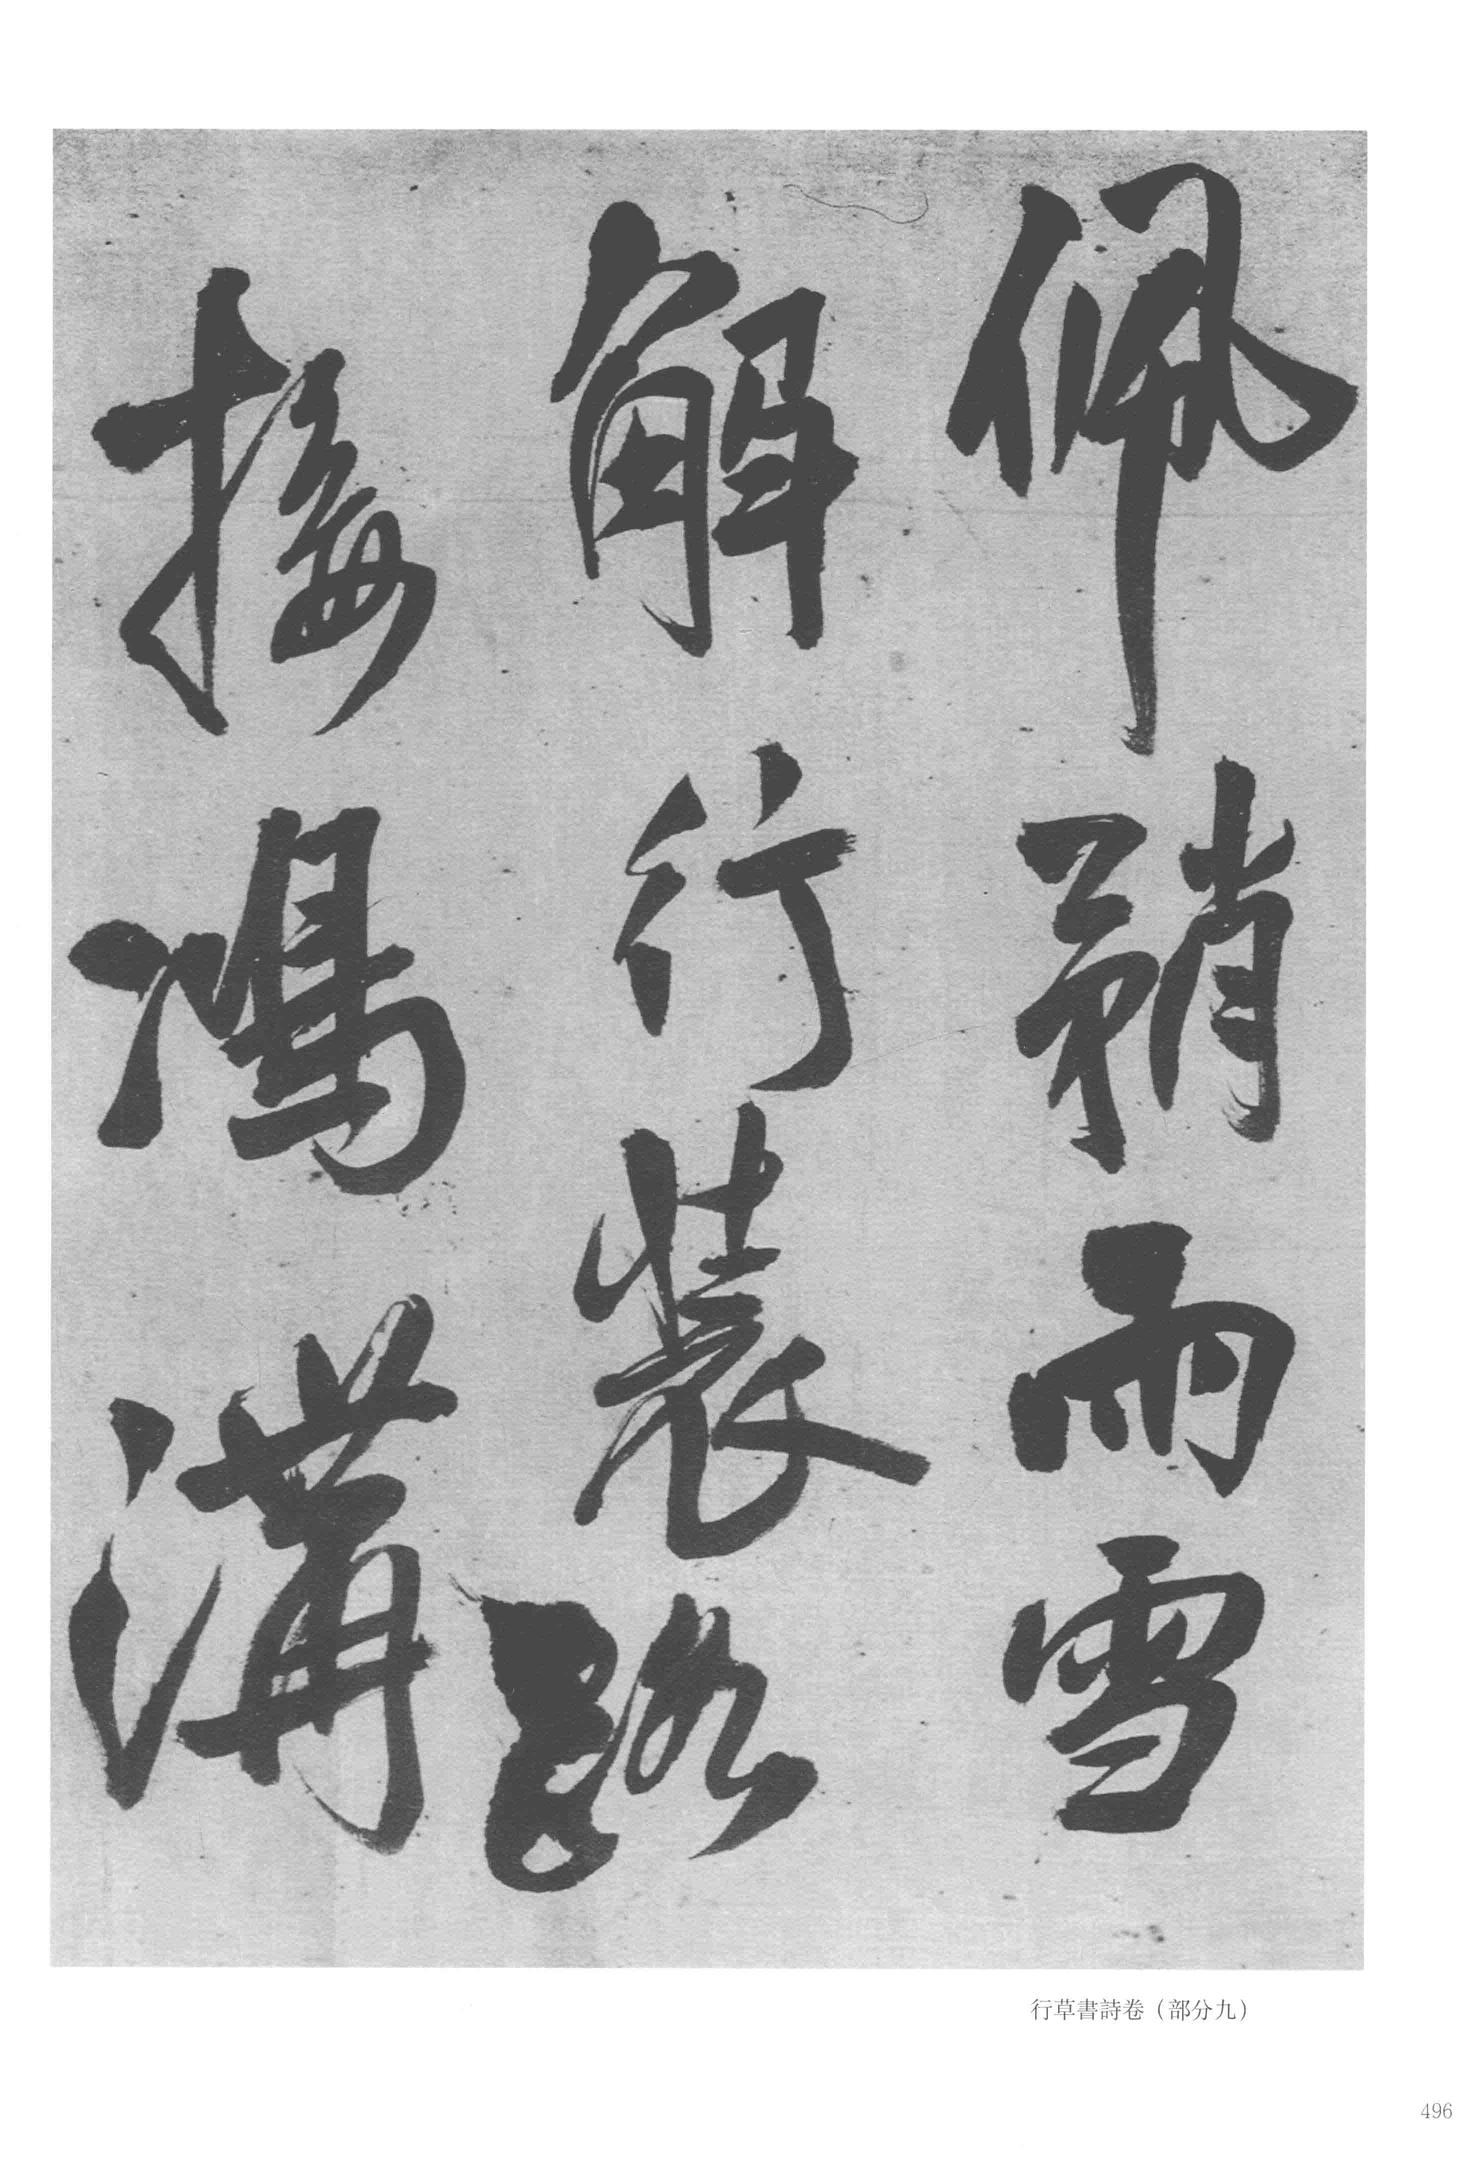 佩鞘雨雪
解行裝路
接鴻溝
行草書詩卷（部分九）
496